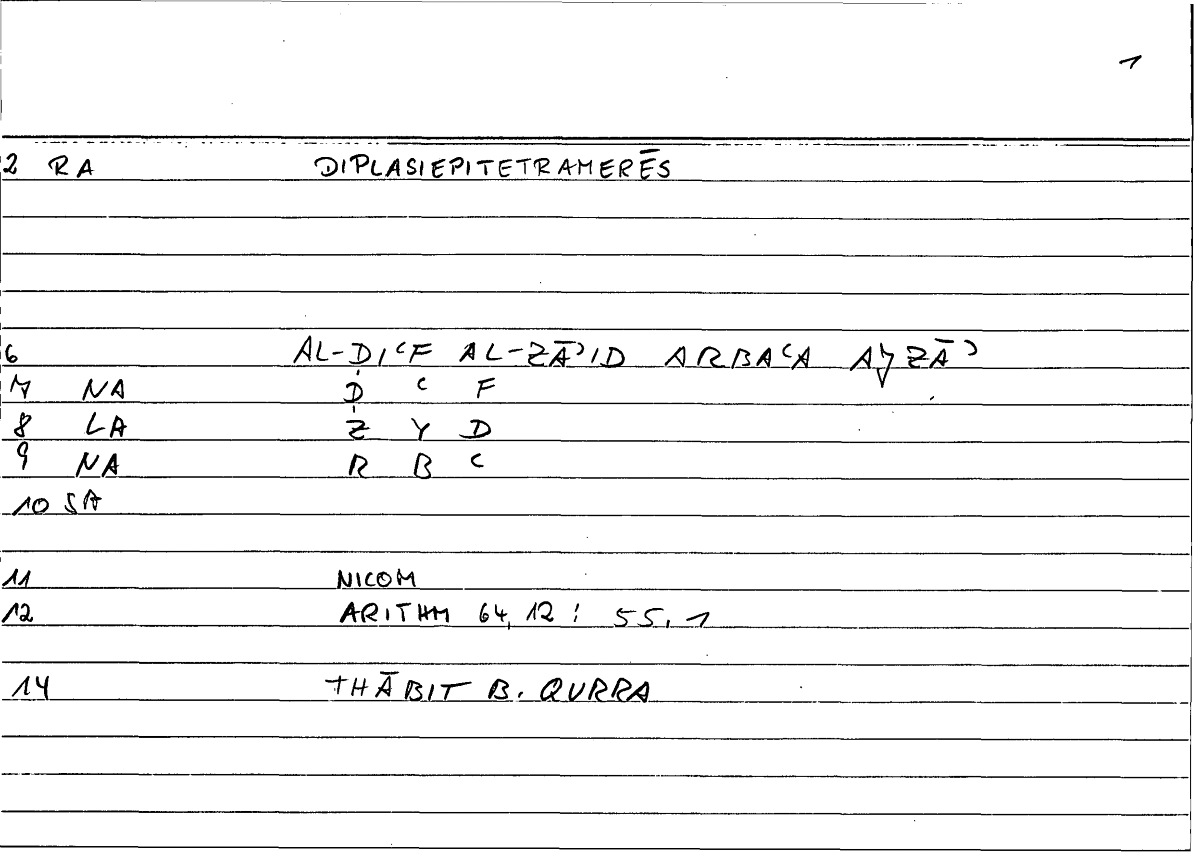 1
2 RA DIPLASIEPITETRAMERĒS
6 AL-ḌIʿF AL-ZĀʾID ARBAʿA AǦZĀʾ
7 NA Ḍ ʿ F
8 LA Z Y D
9 NA R B ʿ
10 SA
11 NICOM
12 ARITHM 64,12 : 55,1
14 THĀBIT B. QURRA